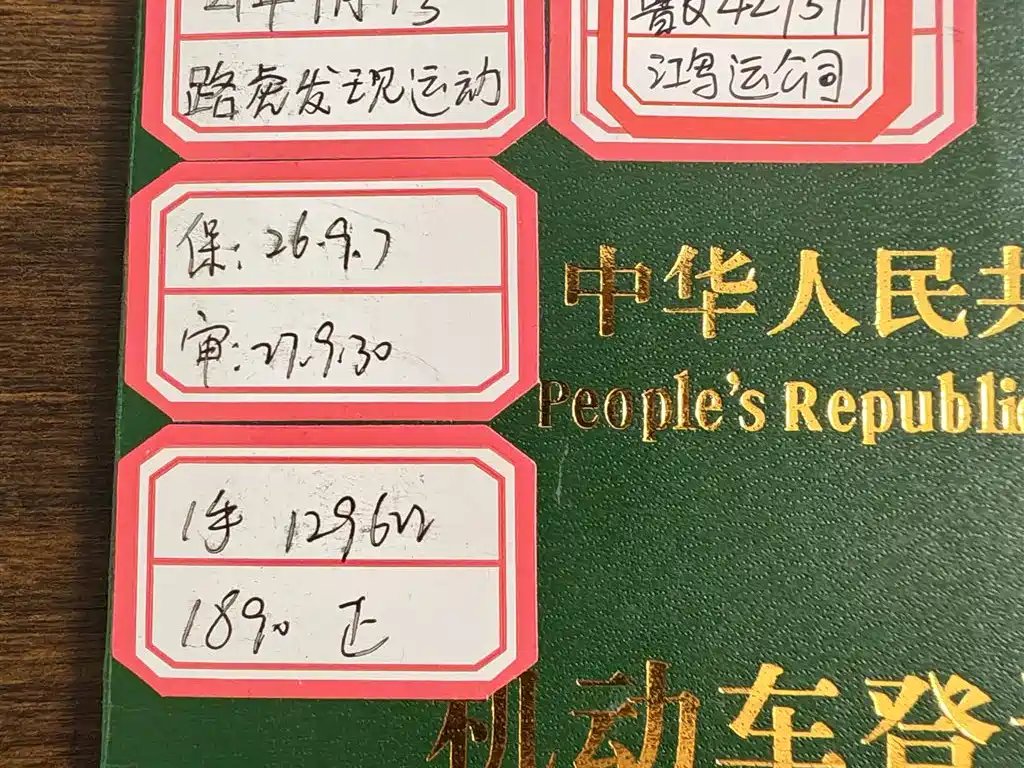 路虎发现运动
江号运公司
保: 26.9.7
审: 27.9.30
1手 129600
1890 正
中华人民共
People's Republic
机动车登